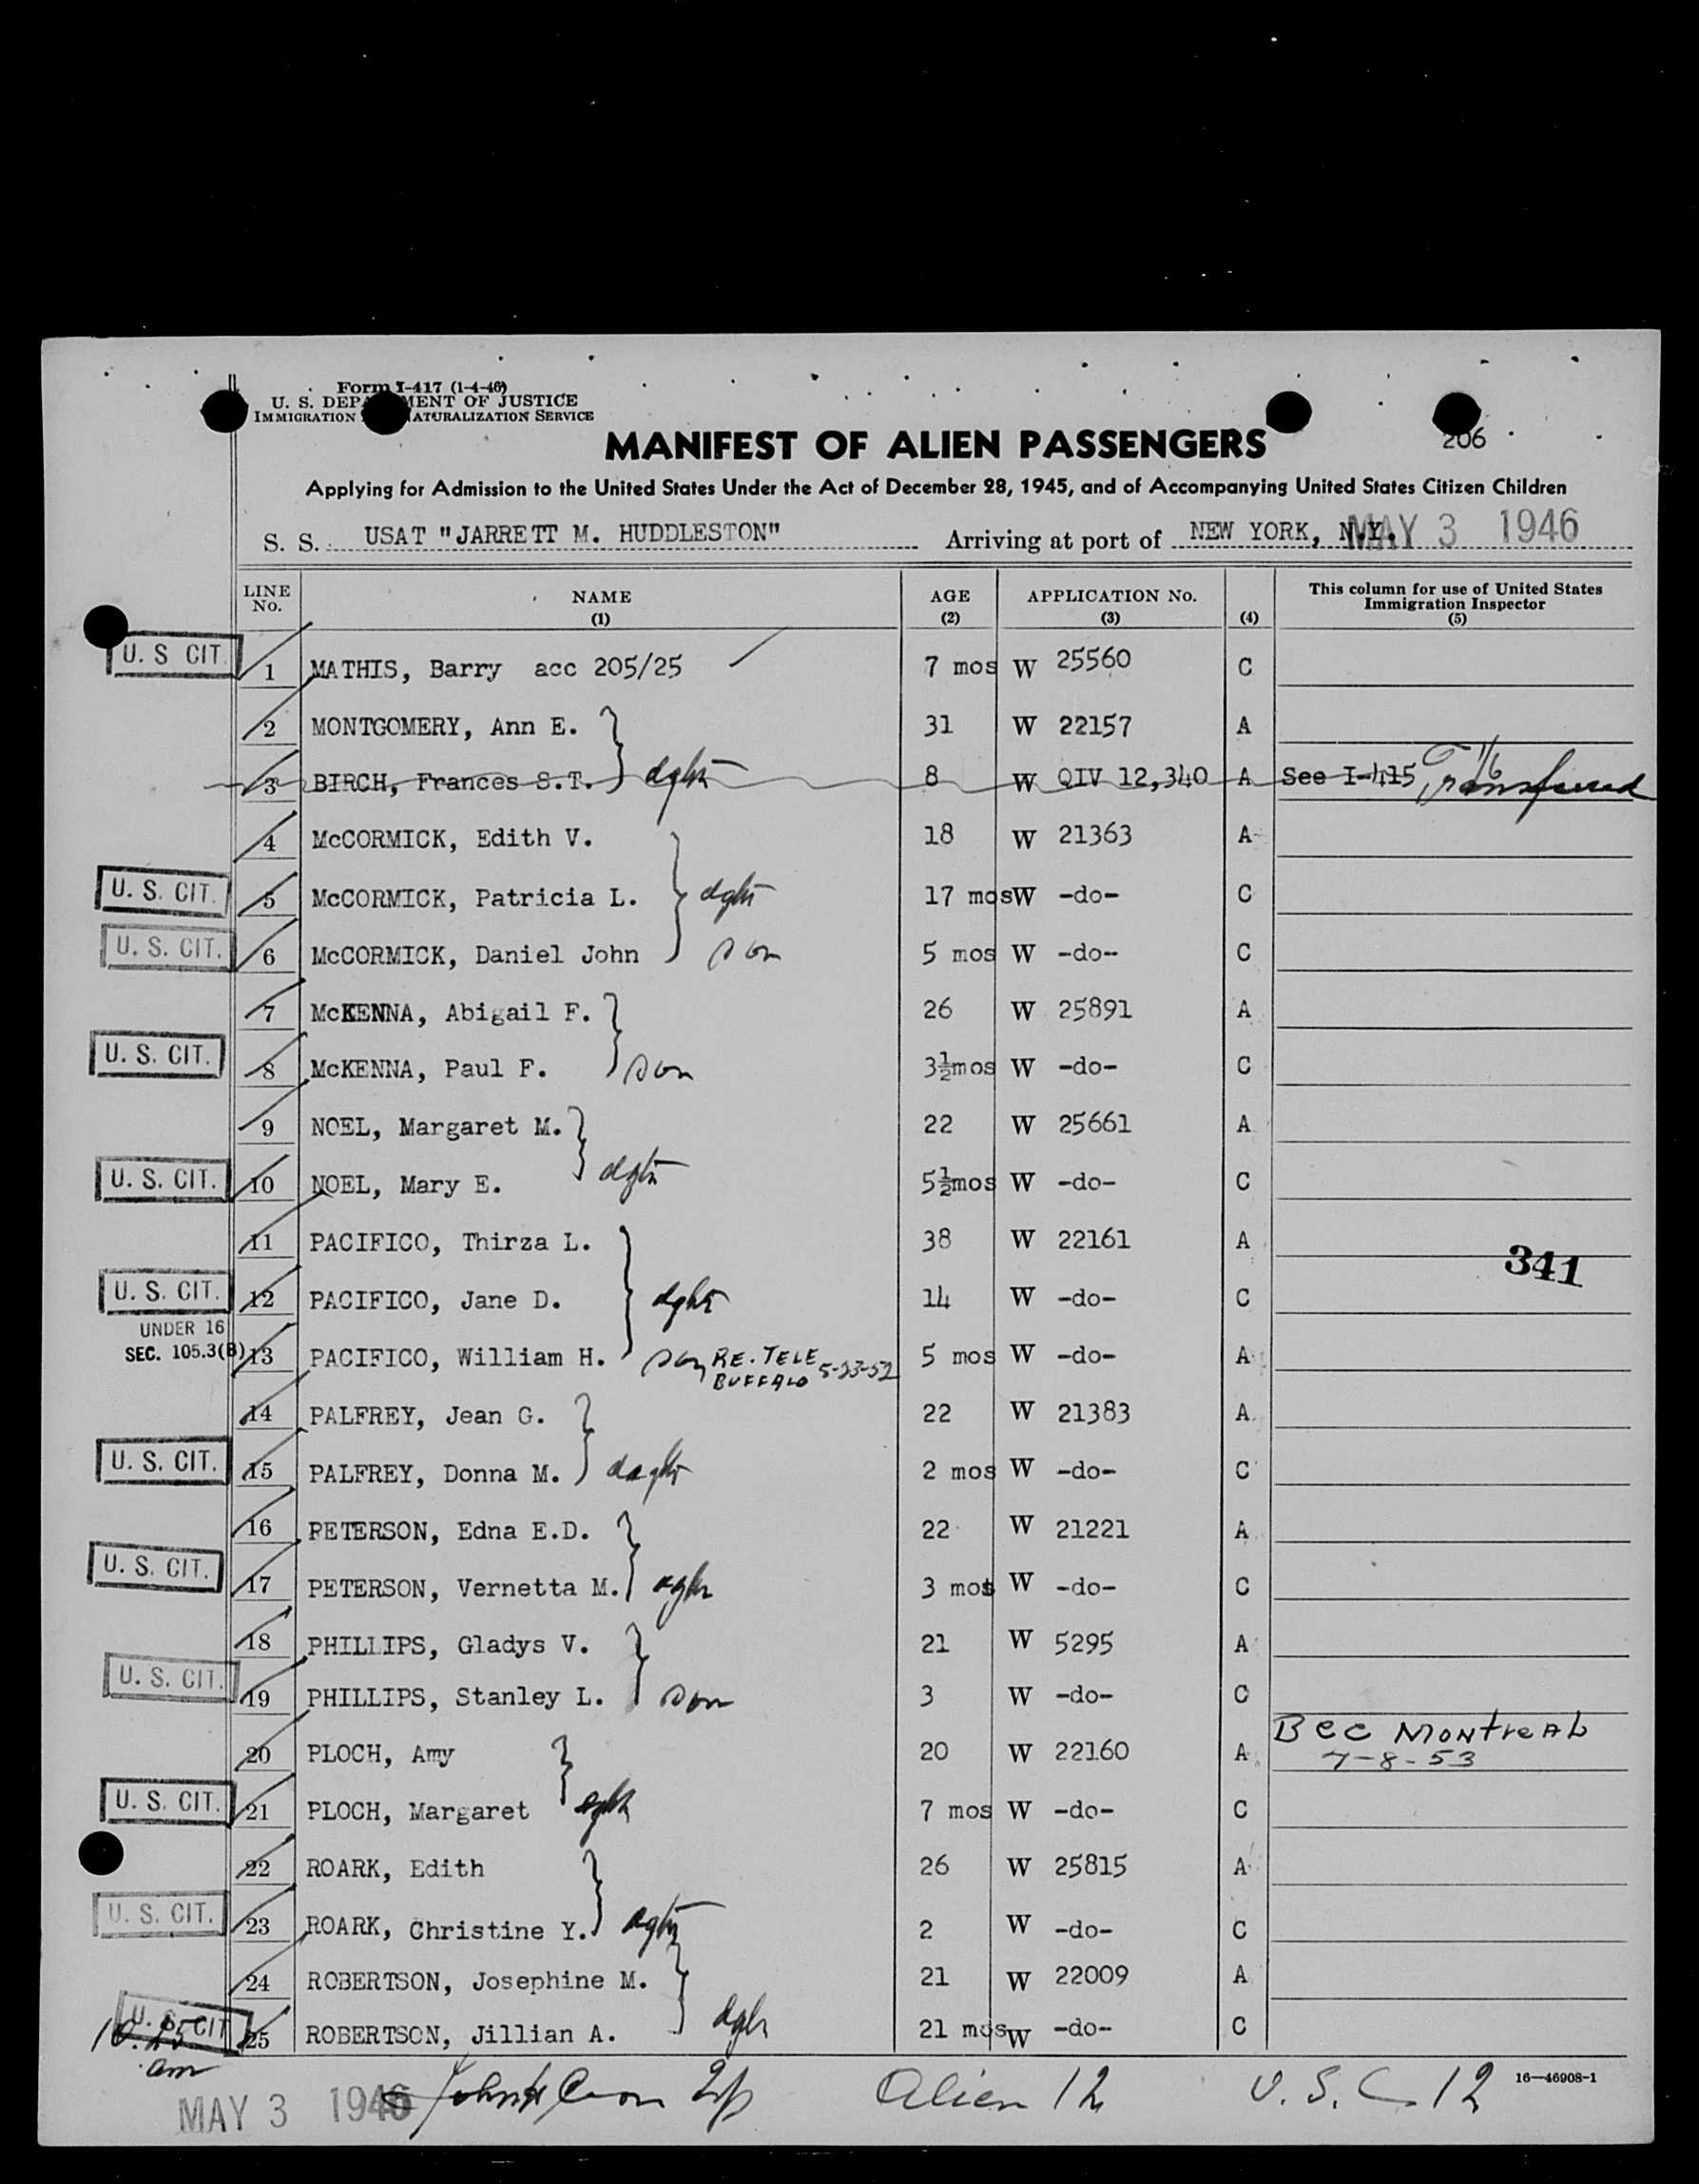 Form I-417 (1-4-46)
U. S. DEPARTMENT OF JUSTICE
IMMIGRATION NATURALIZATION SERVICE
206
MANIFEST OF ALIEN PASSENGERS
Applying for Admission to the United States Under the Act of December 28, 1945, and of Accompanying United States Citizen Children
S. S. USAT "JARRETT M. HUDDLESTON" Arriving at port of NEW YORK, N.Y. MAY 3 1946
LINE No. NAME (1) AGE (2) APPLICATION No. (3) (4) This column for use of United States Immigration Inspector (5)
U. S CIT. 1 MATHIS, Barry acc 205/25 7 mos W 25560 C
2 MONTGOMERY, Ann E. 31 W 22157 A
3 BIRCH, Frances S.T. dghtr 8 W QIV 12,340 A See I-415 Transferred
4 McCORMICK, Edith V. 18 W 21363 A
U. S. CIT. 5 McCORMICK, Patricia L. dghtr 17 mos W -do- C
U. S. CIT. 6 McCORMICK, Daniel John son 5 mos W -do- C
7 McKENNA, Abigail F. 26 W 25891 A
U. S. CIT. 8 McKENNA, Paul F. son 3½mos W -do- C
9 NOEL, Margaret M. 22 W 25661 A
U. S. CIT. 10 NOEL, Mary E. dghtr 5½mos W -do- C
11 PACIFICO, Thirza L. 38 W 22161 A
341
U. S. CIT. 12 PACIFICO, Jane D. dghtr 14 W -do- C
UNDER 16
SEC. 105.3(B) 13 PACIFICO, William H. son RE. TELE BUFFALO 5-23-52 5 mos W -do- A
14 PALFREY, Jean G. 22 W 21383 A
U. S. CIT. 15 PALFREY, Donna M. daghtr 2 mos W -do- C
16 PETERSON, Edna E.D. 22 W 21221 A
U. S. CIT. 17 PETERSON, Vernetta M. dghtr 3 mos W -do- C
18 PHILLIPS, Gladys V. 21 W 5295 A
U. S. CIT. 19 PHILLIPS, Stanley L. son 3 W -do- C
20 PLOCH, Amy 20 W 22160 A BCC MONTREAL 7-8-53
U. S. CIT. 21 PLOCH, Margaret dghtr 7 mos W -do- C
22 ROARK, Edith 26 W 25815 A
U. S. CIT. 23 ROARK, Christine Y. dghtr 2 W -do- C
24 ROBERTSON, Josephine M. 21 W 22009 A
U. S. CIT 25 ROBERTSON, Jillian A. dghtr 21 mos W -do- C
am
MAY 3 1946 Alien 12 U. S. C. 12 16—46908-1